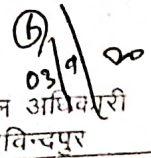 6
03/9/20
अधिकारी
विन्दपुर